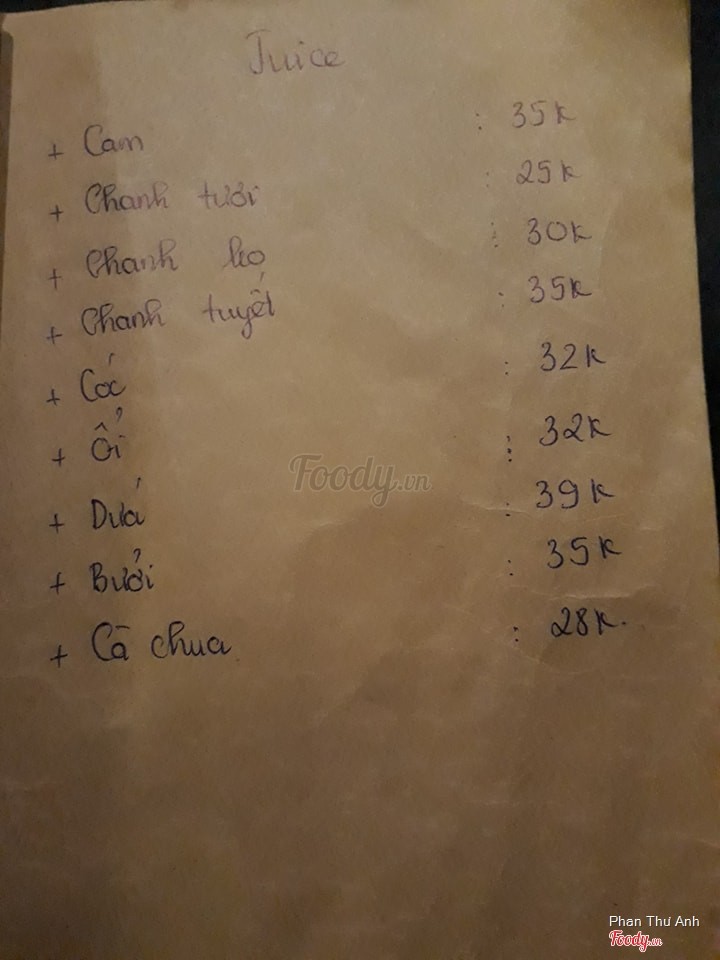 Juice
+ Cam : 35k
+ Chanh tươi : 25k
+ Chanh leo : 30k
+ Chanh tuyết : 35k
+ Cóc : 32k
+ Ổi : 32k
+ Dứa : 39k
+ Bưởi : 35k
+ Cà chua : 28k.
Foody.vn
Phan Thư Anh
Foody.vn